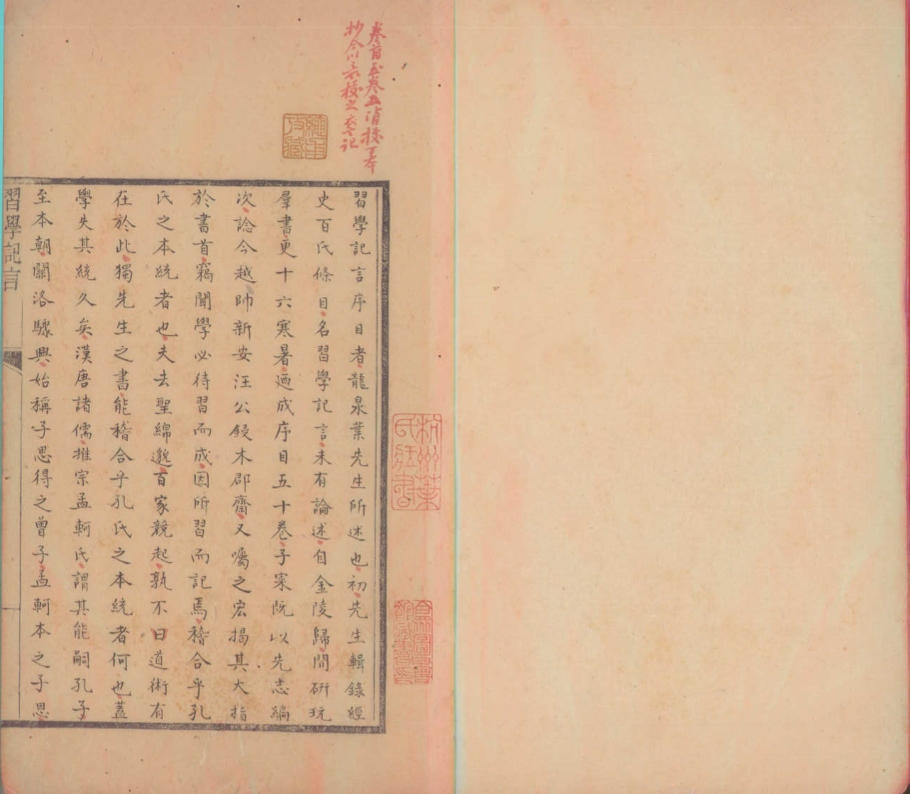 卷首至卷五
習學記言序目者龍泉葉先生所述也初先生輯錄經
史百氏條目名習學記言未有論述自金陵歸間研玩
羣書更十六寒暑迺成序目五十卷子寀既以先志編
次諗今越帥新安汪公鋟木郡齋又囑之宏揭其大指
於書首竊聞學必待習而成因所習而記焉稽合乎孔
氏之本統者也夫去聖綿邈百家競起孰不曰道術有
在於此獨先生之書能稽合乎孔氏之本統者何也蓋
學失其統久矣漢唐諸儒推宗孟軻氏謂其能嗣孔子
至本朝關洛驟興始稱子思得之曾子孟軻本之子思
習學記言